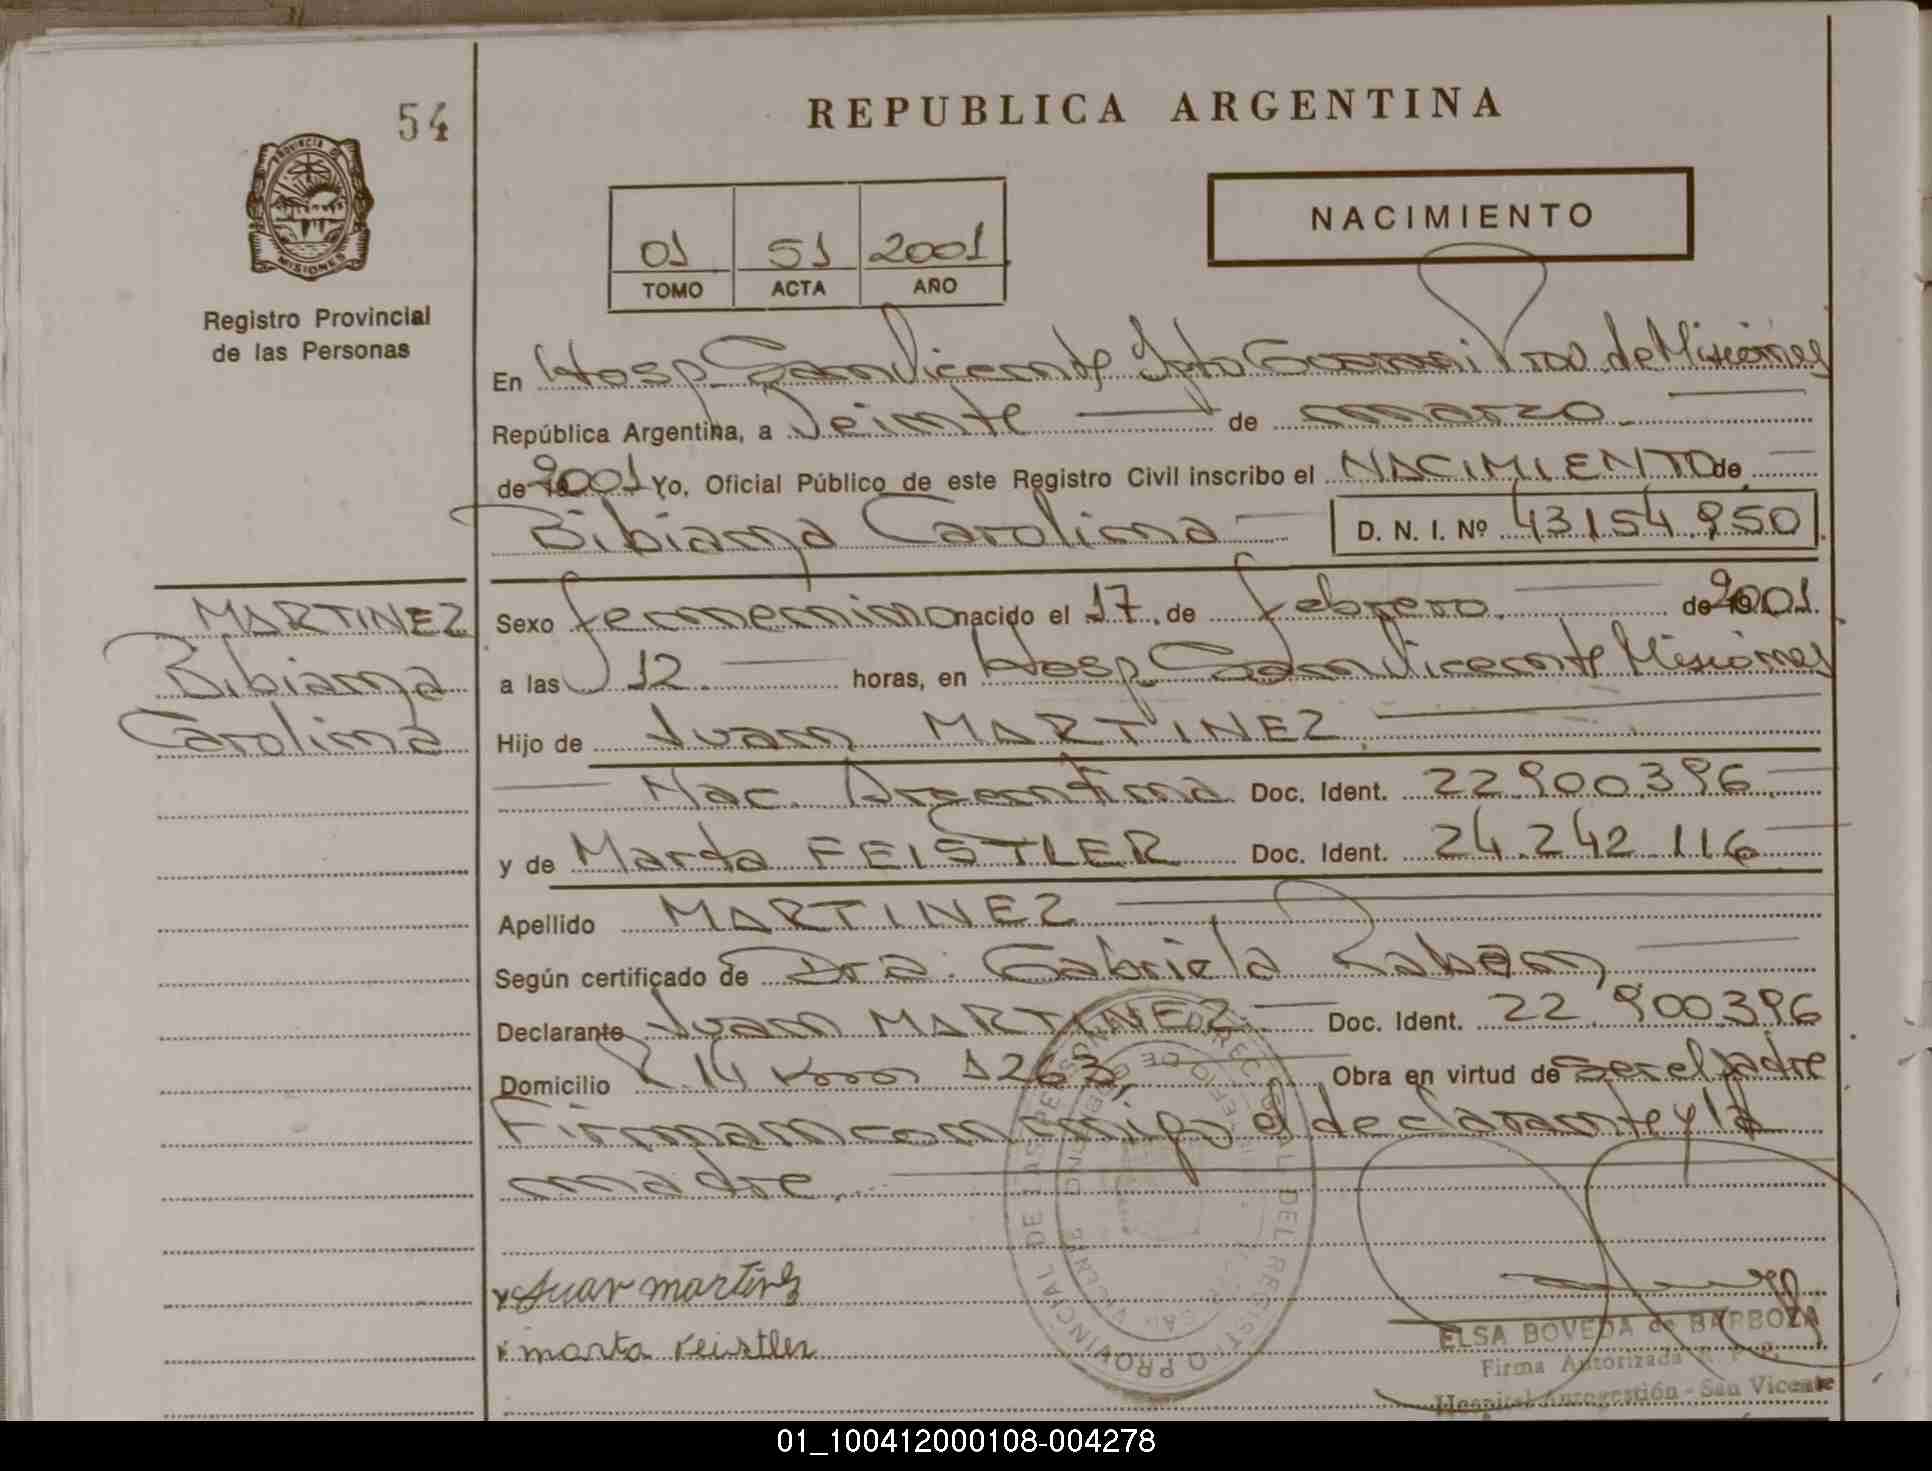 54
REPUBLICA ARGENTINA
PROVINCIA DE
MISIONES
Registro Provincial
de las Personas
01 51 2001
TOMO ACTA AÑO
NACIMIENTO
En Hosp San Vicente Dpto Guarani Prov de Misiones
República Argentina, a Veinte de marzo
de 2001 Yo, Oficial Público de este Registro Civil inscribo el NACIMIENTO de
Bibiana Carolina D. N. I. Nº 43154.950
MARTINEZ
Bibiana
Carolina
Sexo femenino nacido el 17 de febrero de 2001
a las 12 horas, en Hosp San Vicente Misiones
Hijo de Juan MARTINEZ
Nac. Argentina Doc. Ident. 22900396
y de Marta FEISTLER Doc. Ident. 24.242.116
Apellido MARTINEZ
Según certificado de Dra. Gabriela
Declarante Juan MARTINEZ Doc. Ident. 22.900396
Domicilio R 14 Km 1263, Obra en virtud de ser el padre
Firman conmigo el declarante y la
madre.
x Juan martinez
x marta Feistler
ELSA BOVEDA de BARBOZA
Firma Autorizada R. P. P.
Hospital Autogestión - San Vicente
01_100412000108-004278